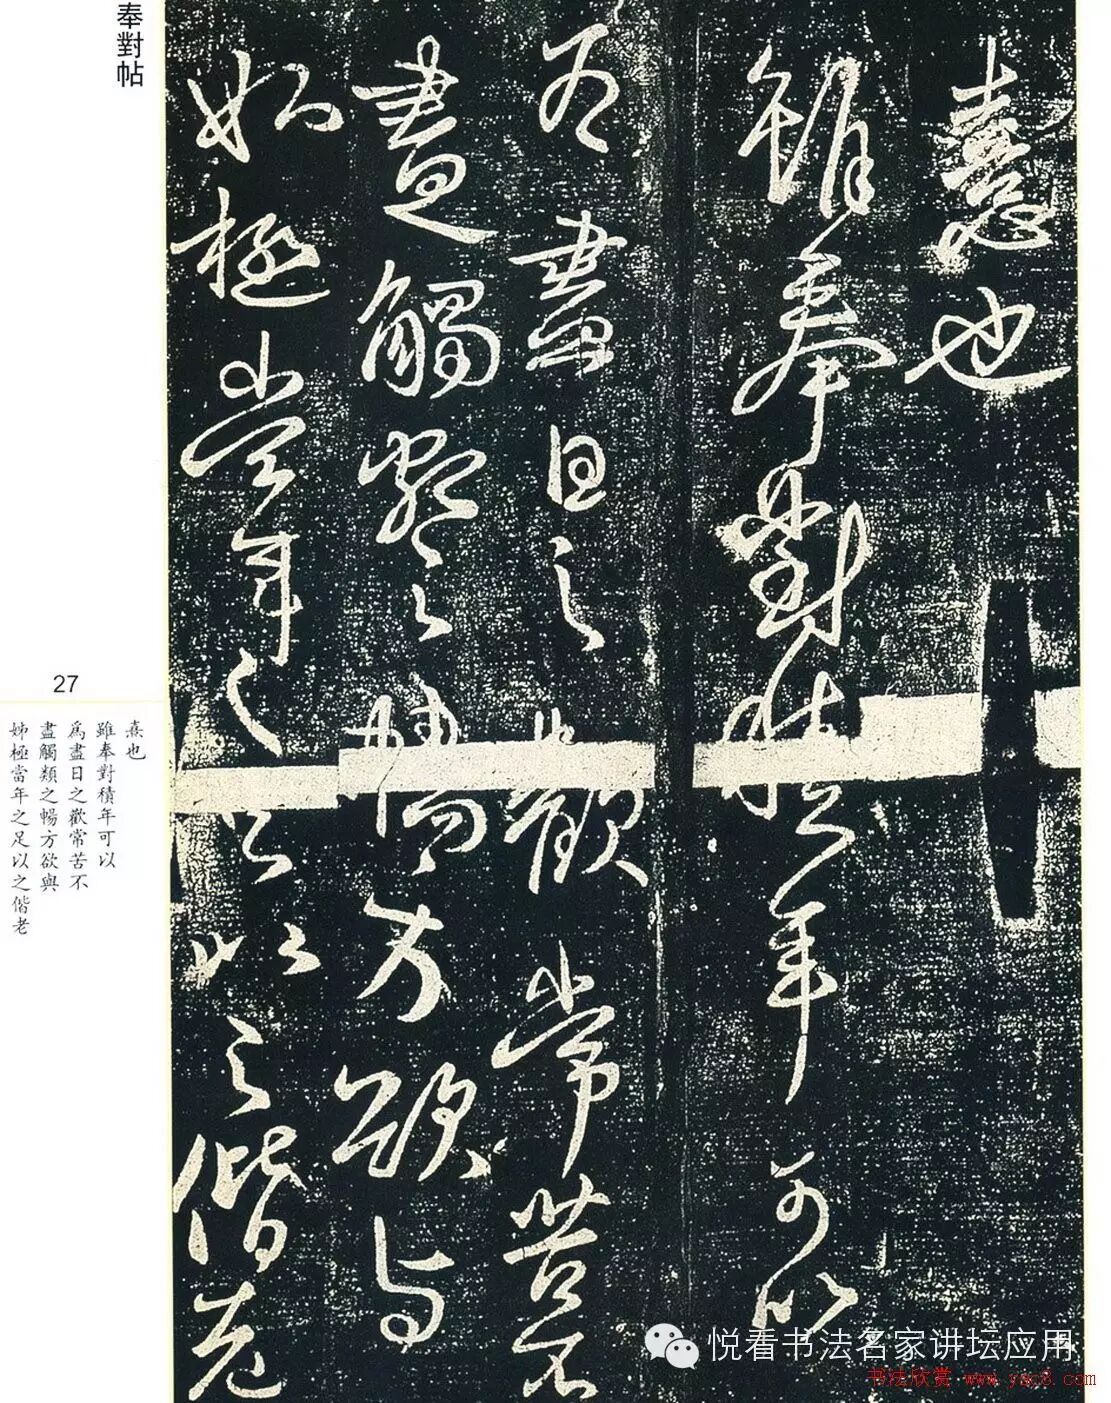 憙也
雖奉對積年可以
為盡日之歡常苦不
盡觸類之暢方欲與
姊極當年之足以之偕老
奉對帖
27
熹也
雖奉對積年可以
爲盡日之歡常苦不
盡觸類之暢方欲與
姊極當年之足以之偕老
悦看书法名家讲坛应用
书法欣赏 www.yac8.com